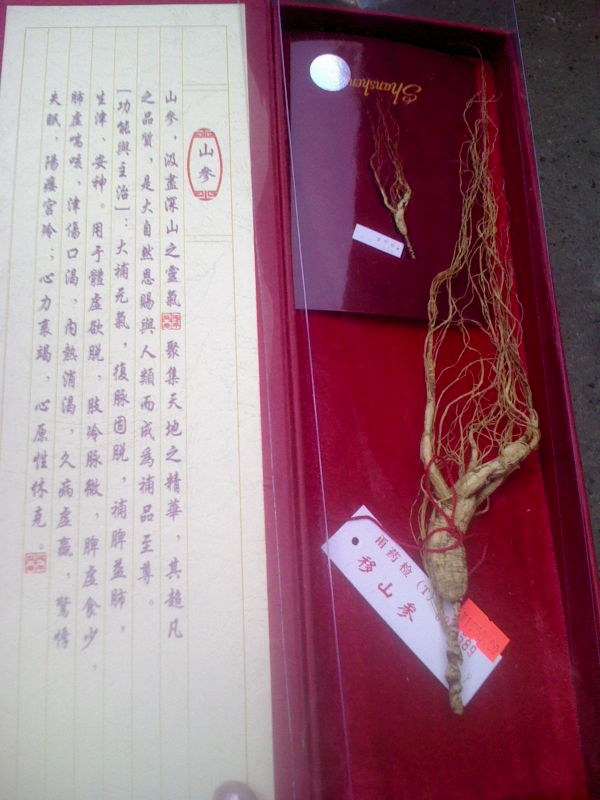 山參
山參，汲盡深山之靈氣 聚集天地之精華，其超凡
之品質，是大自然恩賜與人類而成為補品至尊。
[功能與主治]：大補元氣，復脉固脫，補脾益肺，
生津、安神。用于體虛欲脫，肢冷脉微，脾虛食少，
肺虛喘咳，津傷口渴，內熱消渴，久病虛羸，驚悸
失眠，陽痿宮冷；心力衰竭，心原性休克。
Shanshen
甬药检(T)
移山参